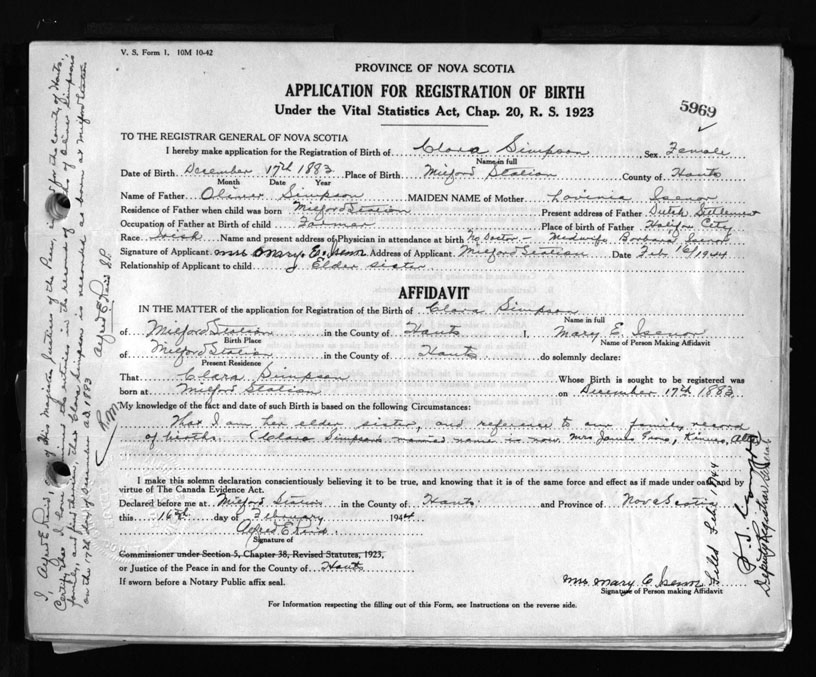 V. S. Form 1. 10M 10-42
PROVINCE OF NOVA SCOTIA
APPLICATION FOR REGISTRATION OF BIRTH
Under the Vital Statistics Act, Chap. 20, R. S. 1923
5969
TO THE REGISTRAR GENERAL OF NOVA SCOTIA
I hereby make application for the Registration of Birth of Clara Simpson Sex Female
Name in full
Date of Birth December 17th 1883 Place of Birth Milford Station County of Hants
Month Date Year
Name of Father Oliver Simpson MAIDEN NAME of Mother Lovinia Isenor
Residence of Father when child was born Milford Station Present address of Father Dutch Settlement
Occupation of Father at Birth of child Farmer Place of birth of Father Halifax City
Race Irish Name and present address of Physician in attendance at birth No Doctor - Midwife Barbara Isenor
Signature of Applicant Mrs Mary E. Isenor Address of Applicant Milford Station Date Feb 16/1944
Relationship of Applicant to child Elder sister
AFFIDAVIT
IN THE MATTER of the application for Registration of the Birth of Clara Simpson
Name in full
of Milford Station in the County of Hants I, Mary E. Isenor
Birth Place Name of Person Making Affidavit
of Milford Station in the County of Hants do solemnly declare:
Present Residence
That Clara Simpson Whose Birth is sought to be registered was
born at Milford Station on December 17th 1883
My knowledge of the fact and date of such Birth is based on the following Circumstances:
That I am her elder sister, and reference to our family record
of births. Clara Simpson's married name is now Mrs James
I make this solemn declaration conscientiously believing it to be true, and knowing that it is of the same force and effect as if made under oath and by
virtue of The Canada Evidence Act.
Declared before me at Milford Station in the County of Hants and Province of Nova Scotia
this 16th day of February 1944
Alfred E Reid
Signature of
Commissioner under Section 5, Chapter 38, Revised Statutes, 1923,
or Justice of the Peace in and for the County of Hants
If sworn before a Notary Public affix seal.
Mrs Mary E Isenor
Signature of Person making Affidavit
For Information respecting the filling out of this Form, see Instructions on the reverse side.
I, Alfred E Reid, one of His Majesties Justices of the Peace, in & for the County of Hants,
Certify that I have examined the entries in the records of births of Oliver Simpsons
family, and find therein, that Clara Simpson is recorded as born at Milford Station
on the 17th day of December A.D. 1883
Alfred E Reid J.P.
Filed Feb 1944
Deputy Registrar General